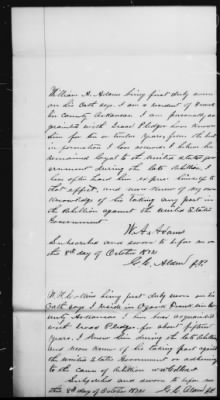 William A. Adams being first duly sworn
on his oath says I am a resident of Frank
lin County Arkansas I am personally ac
quainted with Isaac Pledger have known
him for six or twelve years, from the best
information I have received I believe he
remained loyal to the United states gov
ernment during the late rebellion I
have often heard him express himself to
that effect, and now know of my own
knowledge of his taking any part in
the Rebellion against the United States
Government
Wm A. Adams
Subscribed and sworn to before me on
the 8th day of October 1872
G. C. Alden J.P.
being first duly sworn on his
oath says I reside in Ozark Franklin
County Arkansas I have been acquainted
with Isaac Pledger for about fifteen
years, I knew him during the late Rebellion
and never knew of his taking part against
the United States Government or adhering
to the cause of rebellion
Subscribed and sworn to before me
this 8th day of October 1872 G. C. Alden J.P.